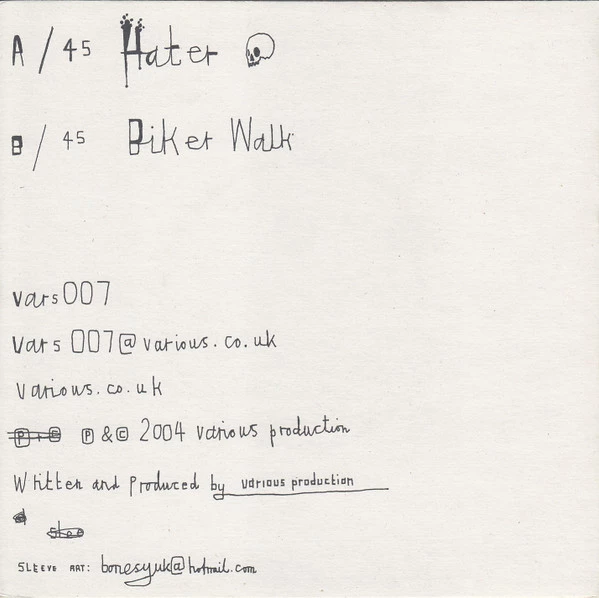 A / 45 Hater
B / 45 Biker Walk
vars007
vars 007@various.co.uk
various.co.uk
Ⓟ & © 2004 various production
Written and Produced by various production
SLEEVE ART: bonesyuk@hotmail.com